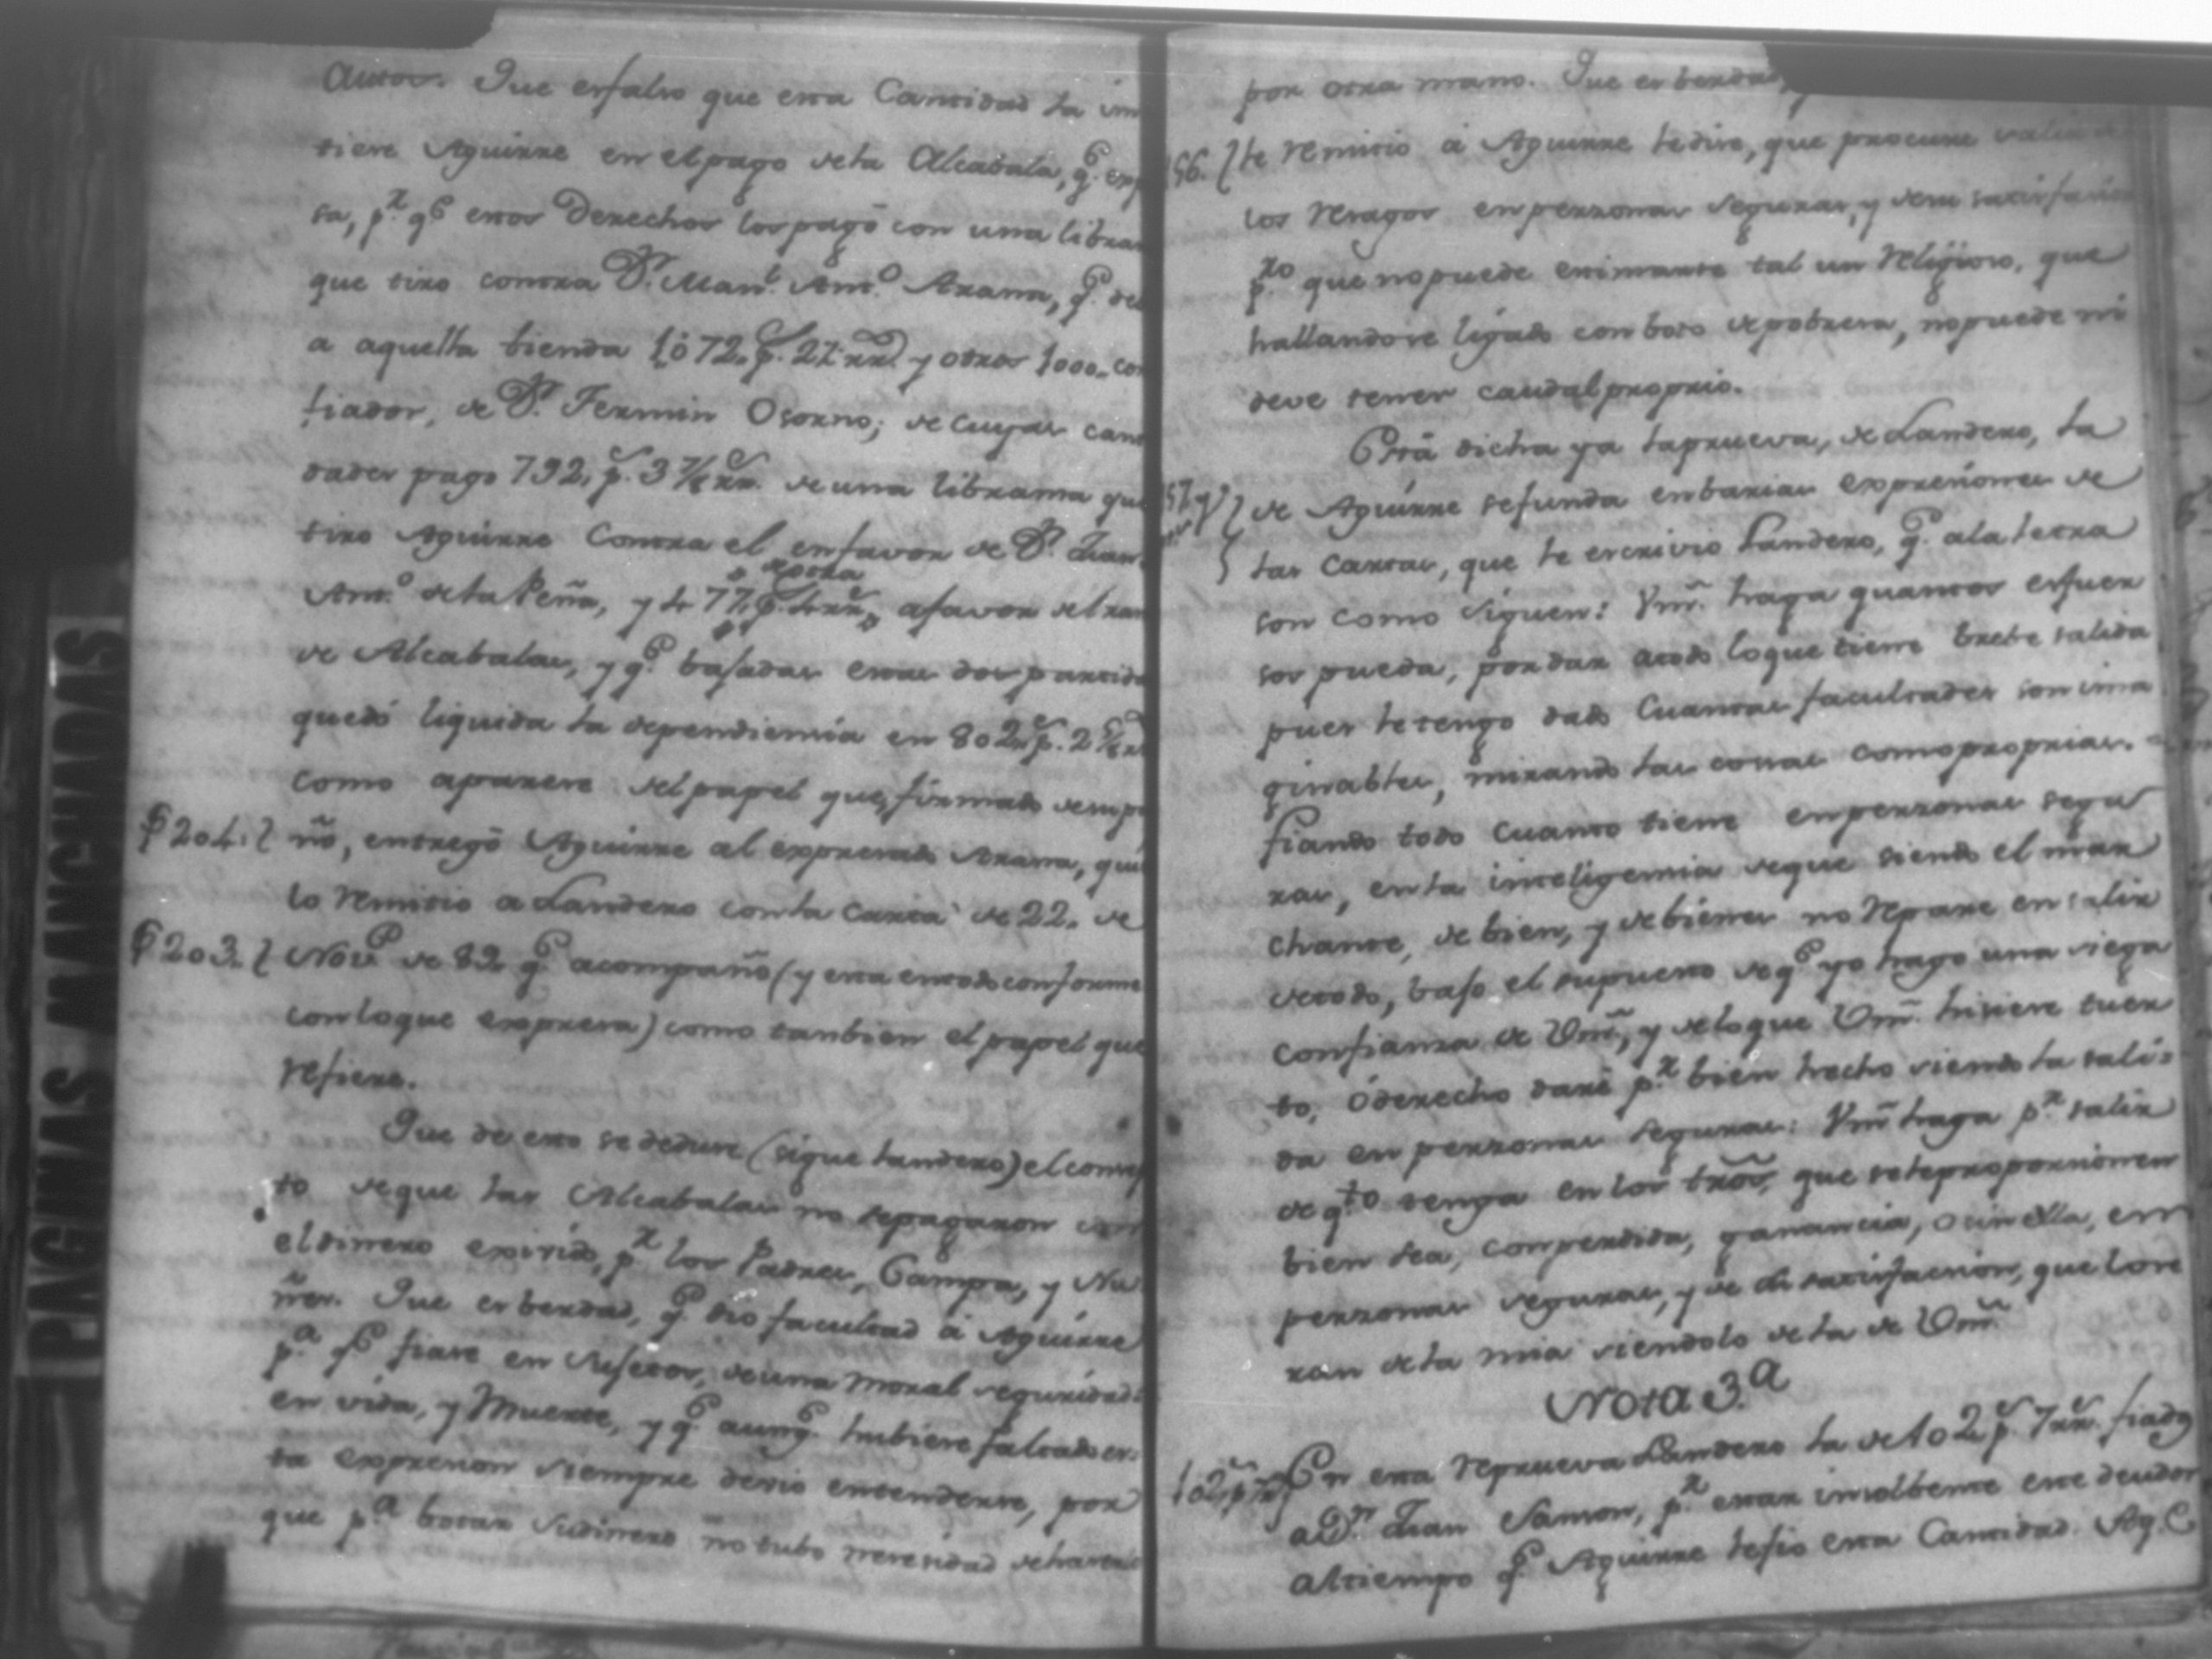 Autos. Que es falso que esta Cantidad la im
tiere Aguirre en el pago de la Alcabala, q.e exp
sa, p.r q.e estos Derechos los pagò con una libra
que tiro contra D.n Man.l Ant.o Arana, q.e de
a aquella tienda 1ō72. p.s 2½ rr.s y otros 1000. co
fiador, de D.n Fermin Osorno; de cuyas can
dades pago 792. p.s 3½ rr.s de una libransa que
tiro Aguirre Contra el en favor de D.n Juan
Ant.o de la Peña, y de otra 77. p.s 4 rr.s a favor del ra
de Alcabalas, y q.e bajadas estas dos partida
quedó liquida la dependiensia en 802. p.s 2½ r
como aparese del papel que, firmado de su p
§ 204. ño, entregò Aguirre al expresado Arana, qui
lo remitio a Landero con la carta de 22. de
§ 203. Nov.e de 82 q.e acompaño (y esta en todo conforme
con lo que expresa) como tanbien el papel que
refiere.
Que de esto se deduse (sigue Landero) el consep
to de que las Alcabalas no se pagaron con
el dinero exivido, p.r los Padres, Campa, y Nu
ñes. Que es berdad, q.e dio facultad à Aguirre
p.a q.e fiase en Sujetos, de una moral seguridad
en vida, y Muerte, y q.e aunq.e hubiese faltado es
ta expresion siempre devio entenderse, por
que p.a botar su dinero no tubo nesesidad de haserlo
por otra mano. Que es berdad,
56. le remitio à Aguirre le dise, que procure salir de
los resagos en personas seguras, y de su satisfasion
p.ro que no puede estimarse tal un Religioso, que
hallandose ligado con boto de pobresa, no puede ni
deve tener caudal proprio.
Està dicha ya la prueva, de Landero, la
57. y de Aguirre se funda en barias expresiones de
las Cartas, que le escrivio Landero, q.e a la letra
son como siguen: Vm̃. haga quantos esfuer
sos pueda, por dar a todo lo que tiene brebe salida
pues le tengo dado Cuantas facultades son ima
ginables, mirando las cosas como proprias.
fiando todo cuanto tiene en personas segu
ras, en la inteligensia de que siendo el mar
chante, de bien, y de bienes no repare en salir
de todo, bajo el supuesto de q.e yo hago una siega
confianza de Vm̃, y de lo que Vm̃. hisiere tuer
to, ò derecho daré p.r bien hecho siendo la sali=
da en personas seguras: Vm̃ haga p.r salir
de q.to tenga en los term̃os, que se le proporsionen
bien sea, con perdida, ganancia, o sin ella, en
personas seguras, y de su satisfacsion, que lo se
ran de la mia siendolo de la de Vm̃.
Nota 3.a
102. p.s 7 rr.s En esta reprueva Landero la de 102 p.s 7 rr.s fiado
a D.n Juan Samon, p.r estar insolbente este deudor
al tiempo q.e Aguirre le fio esta Cantidad. Ag.e
PAGINAS MANCHADAS